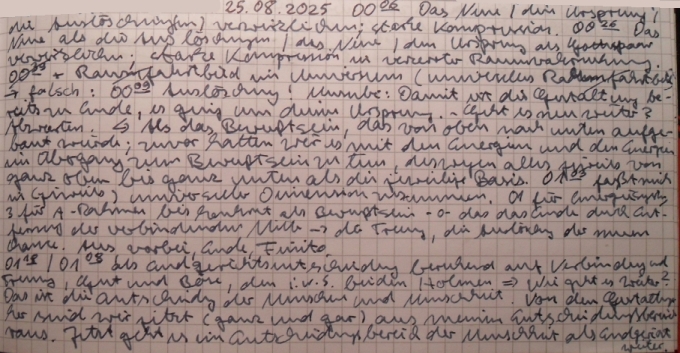 25.08.2025 00 26 Das Neue / den Ursprung;
die Auslöschung(en) verwirklichen; starke Kompression. 00 26 Das
Neue als die Auslöschungen / des Neue / den Ursprung als
verwirklichen; starke Kompression in Raumwahrnehmung.
00 29 + Raumfahrtbild im Universum (universelles
→ falsch: 00 99 Auslöschung! Damit ist die Gestaltung be-
reits zu Ende, es ging um deinen Ursprung. - Geht es nun weiter?
Abwarten. ↳ Als das Bewußtsein, das von oben nach unten aufge-
baut wurde; zuvor hatten wir es mit den Energien und den Energien
im Übergang zum Bewußtsein zu tun, deswegen alles jeweils von
ganz oben bis ganz unten als die jeweilige Basis. 01 faßt mich
in (jeweils) universelle Dimension zusammen. 01 für
3 für A-Rahmen bei als Bewußtsein - o - das das Ende durch Ent-
fernung der verbindenden Mitte → die Trennung, die Auslösung der
Aus vorbei, Ende, Finito.
01 18 / 01 08 als Endgerichtsentscheidung beruhend auf Verbindung und
Trennung, Gut und Böse, den i.v.S. beiden Holmen ⇒ Wie geht es weiter?
Das ist die Entscheidung der Menschen und Menschheit. Von dem
her sind wir jetzt (ganz und gar) aus meinem Entscheidungsbereich
raus. Jetzt geht es im Entscheidungsbereich der Menschheit als Endgericht
weiter.